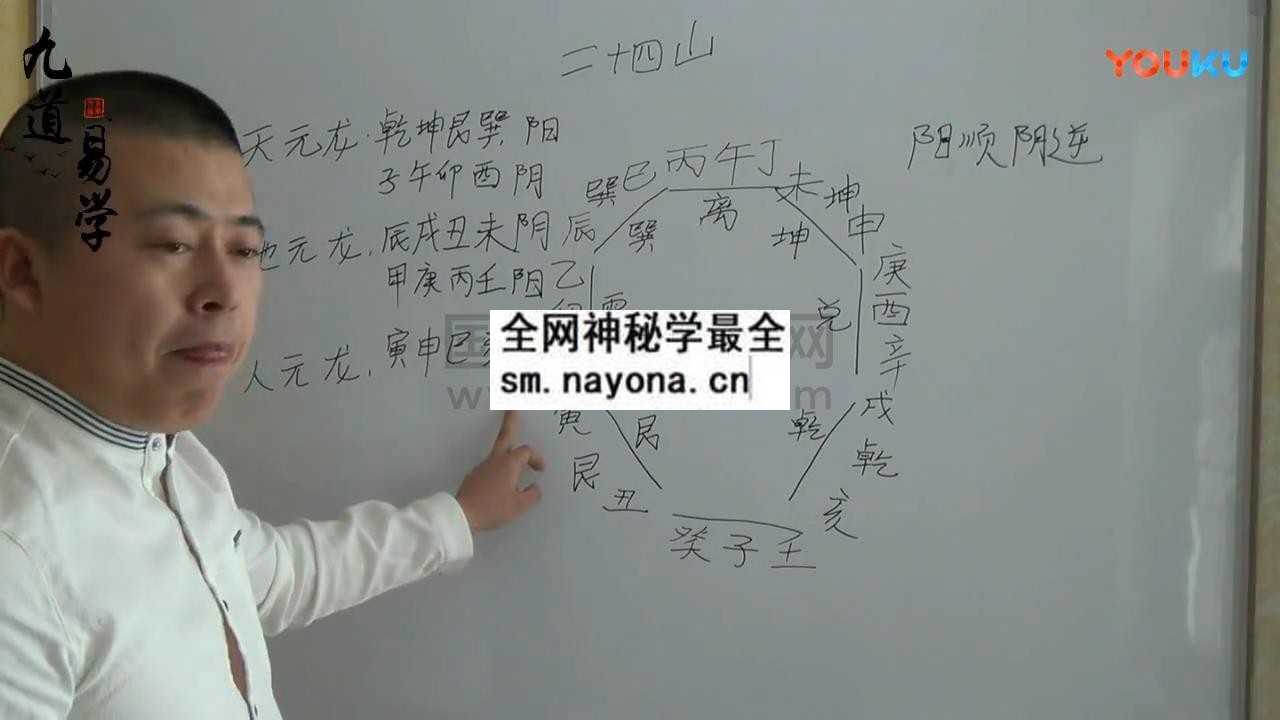 九道易学
YOUKU
二十四山
天元龙.乾坤艮巽阳
子午卯酉阴
地元龙.辰戌丑未阴
甲庚丙壬阳
人元龙.寅申巳
阳顺阴逆
巽巳丙午丁未坤申
庚酉辛
戌乾亥
癸子壬
丑艮寅
乙辰
巽离坤
兑
乾
艮
震
全网神秘学最全
sm.nayona.cn